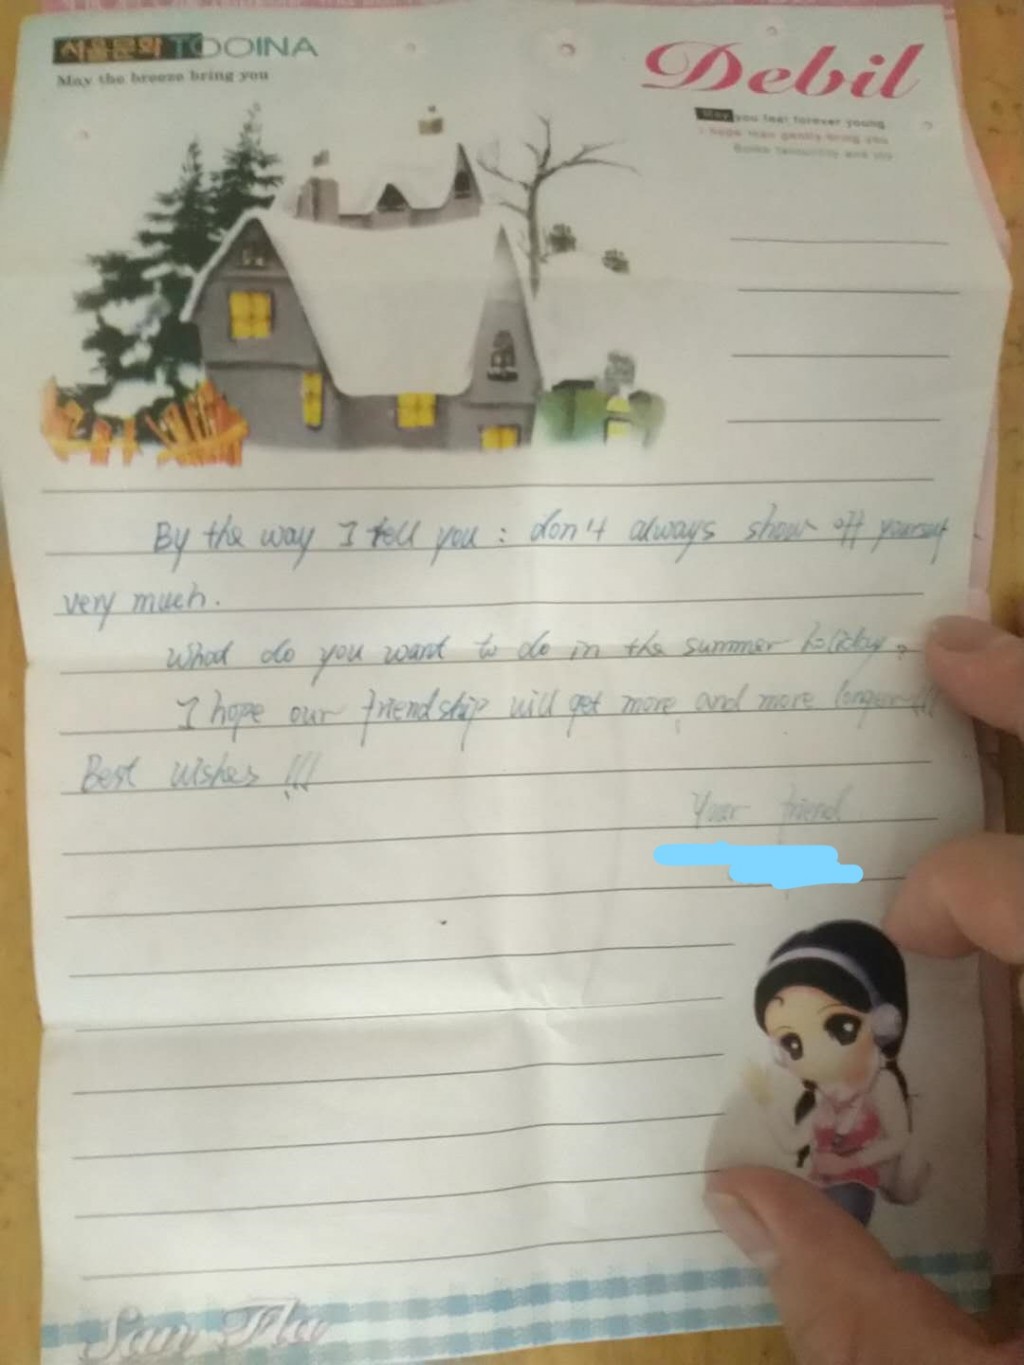 서울문화 TOOINA
May the breeze bring you
Debil
May you feel forever young
I hope may gently bring you
By the way I tell you : don't always show off yourself
very much.
What do you want to do in the summer holiday?
I hope our friendship will get more and more longer!!!
Best wishes !!!
Your friend
San Fla